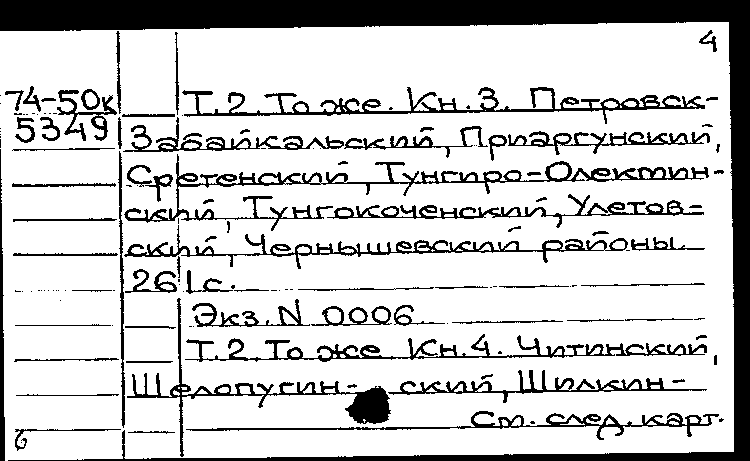 4
74-50к Т.2. То же. Кн. 3. Петровск-
5349 Забайкальский, Приаргунский,
Сретенский, Тунгиро-Олектин-
ский, Тунгокоченский, Улетов-
ский, Чернышевский районы.
261с.
Экз. N 0006
Т.2. То же Кн. 4. Читинский,
Шелопугин- ский, Шилкин-
См. след. карт.
6